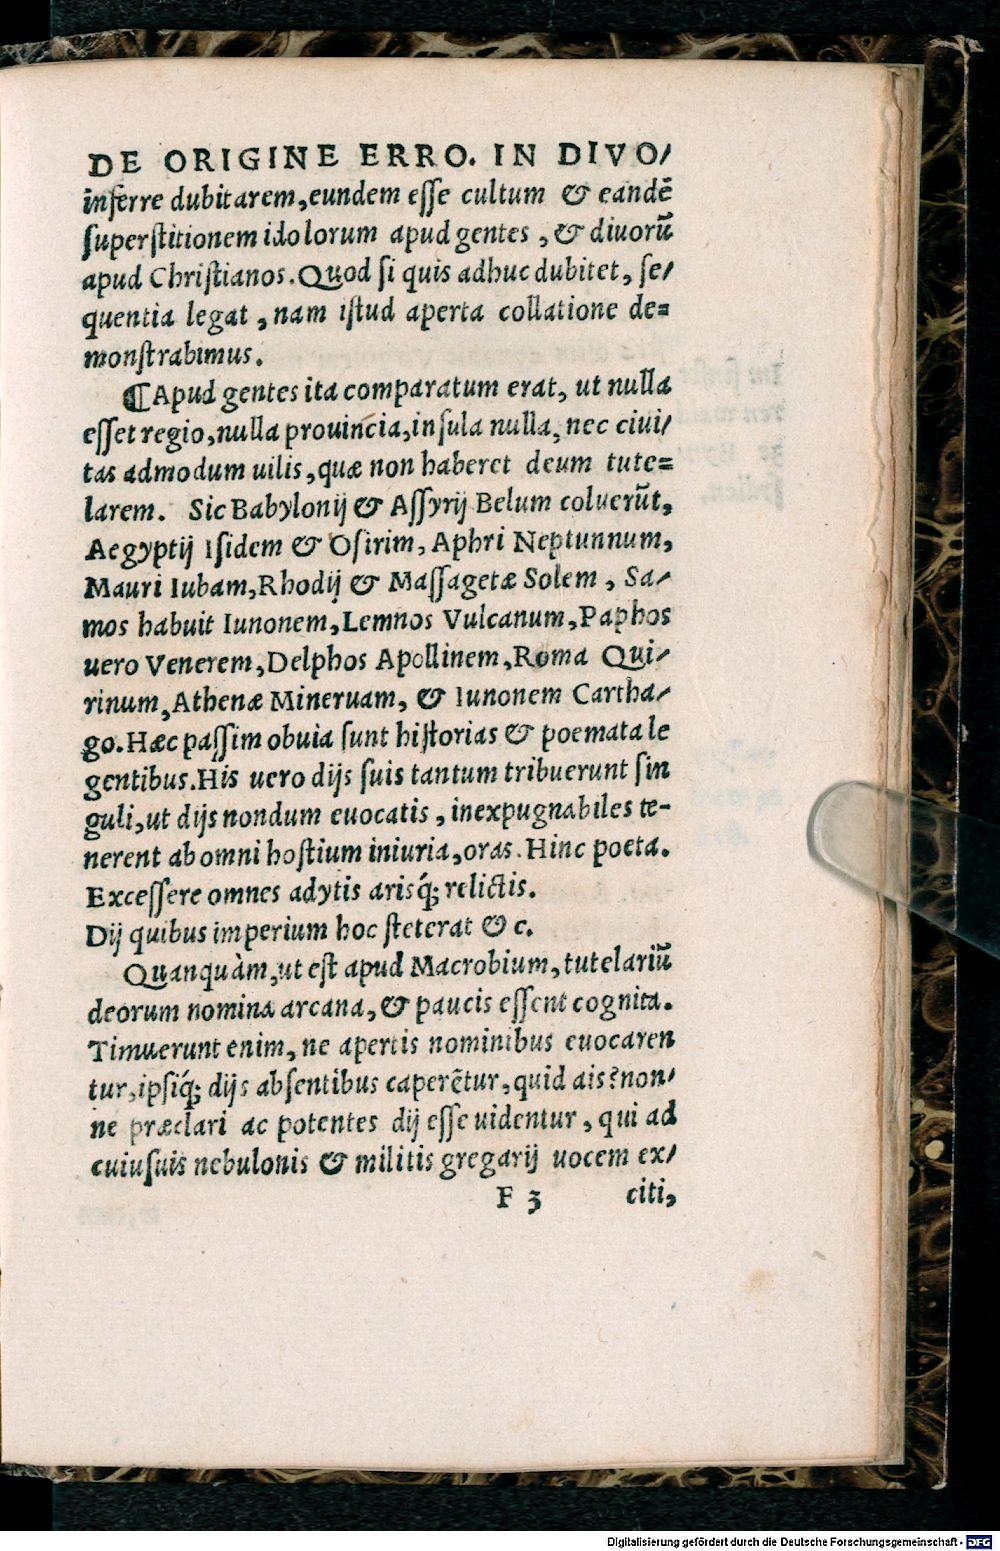 DE ORIGINE ERRO. IN DIVO/
inferre dubitarem, eundem esse cultum & eandē
superstitionem idolorum apud gentes, & diuorū
apud Christianos. Quod si quis adhuc dubitet, se/
quentia legat, nam istud aperta collatione de=
monstrabimus.
¶ Apud gentes ita comparatum erat, ut nulla
esset regio, nulla prouincia, insula nulla, nec ciui/
tas admodum uilis, quæ non haberet deum tute=
larem. Sic Babylonij & Assyrij Belum coluerūt,
Aegyptij Isidem & Osirim, Aphri Neptunnum,
Mauri Iubam, Rhodij & Massagetæ Solem, Sa/
mos habuit Iunonem, Lemnos Vulcanum, Paphos
uero Venerem, Delphos Apollinem, Roma Qui/
rinum, Athenæ Mineruam, & Iunonem Cartha/
go. Hæc passim obuià sunt historias & poemata le
gentibus. His uero dijs suis tantum tribuerunt sin
guli, ut dijs nondum euocatis, inexpugnabiles te-
nerent ab omni hostium iniuria, oras. Hinc poeta.
Excessere omnes adytis arisq́; relictis.
Dij quibus imperium hoc steterat & c.
Quanquàm, ut est apud Macrobium, tutelariū
deorum nomina arcana, & paucis essent cognita.
Timuerunt enim, ne apertis nominibus euocaren
tur, ipsiq́; dijs absentibus caperētur, quid ais? non/
ne præclari ac potentes dij esse uidentur, qui ad
cuiusuis nebulonis & militis gregarij uocem ex/
F 3 citi,
Digitalisierung gefördert durch die Deutsche Forschungsgemeinschaft - DFG